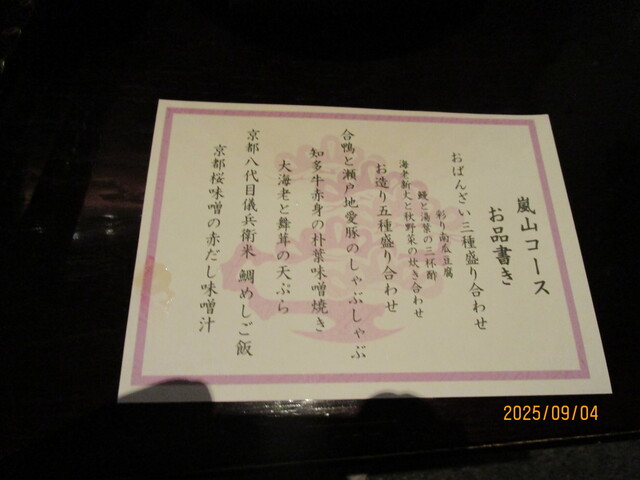 嵐山コース
お品書き
おばんざい三種盛り合わせ
彩り南瓜豆腐
鰻と湯葉の三杯酢
海老新丈と秋野菜の炊き合わせ
お造り五種盛り合わせ
合鴨と瀬戸地愛豚のしゃぶしゃぶ
知多牛赤身の朴葉味噌焼き
大海老と舞茸の天ぷら
京都八代目儀兵衛米 鯛めしご飯
京都桜味噌の赤だし味噌汁
2025/09/04